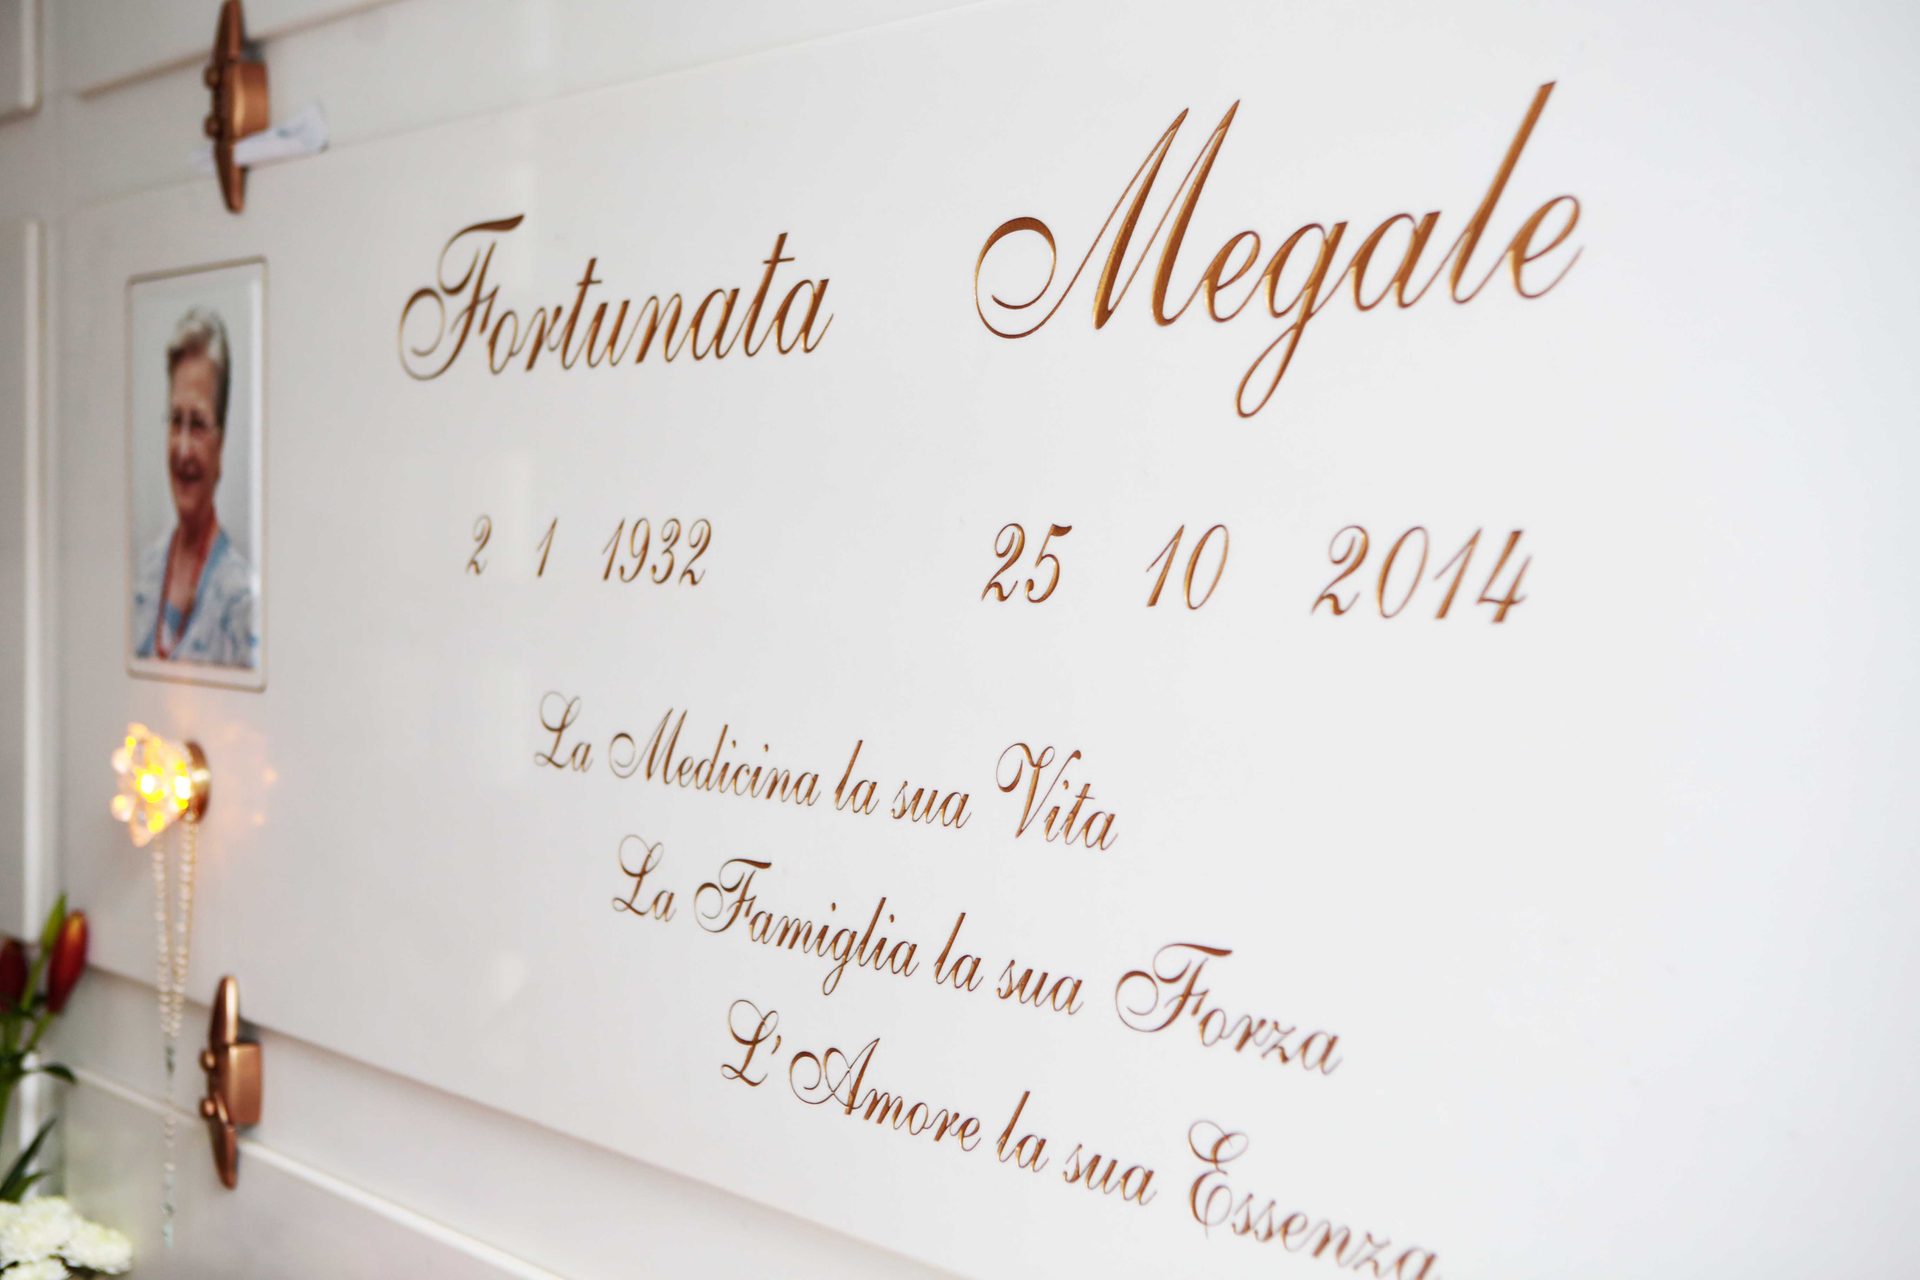 Fortunata Megale
2 1 1932 25 10 2014
La Medicina la sua Vita
La Famiglia la sua Forza
L'Amore la sua Essenza